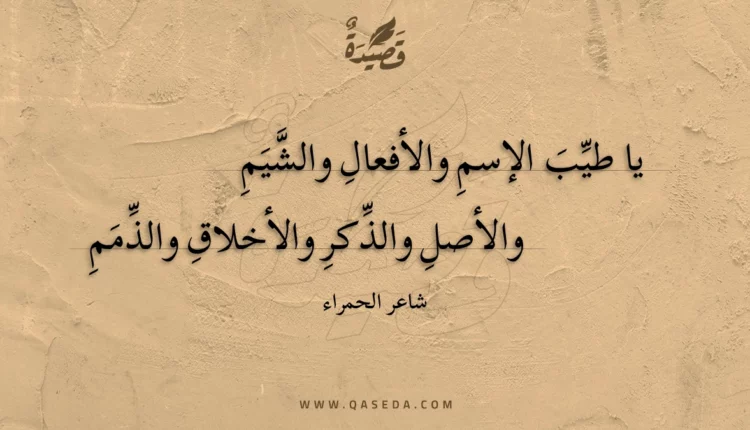 قَصِيْدَةٌ
يا طيِّبَ الإسمِ والأفعالِ والشَّيَمِ
والأصلِ والذِّكرِ والأخلاقِ والذِّمَمِ
شاعر الحمراء
WWW.QASEDA.COM